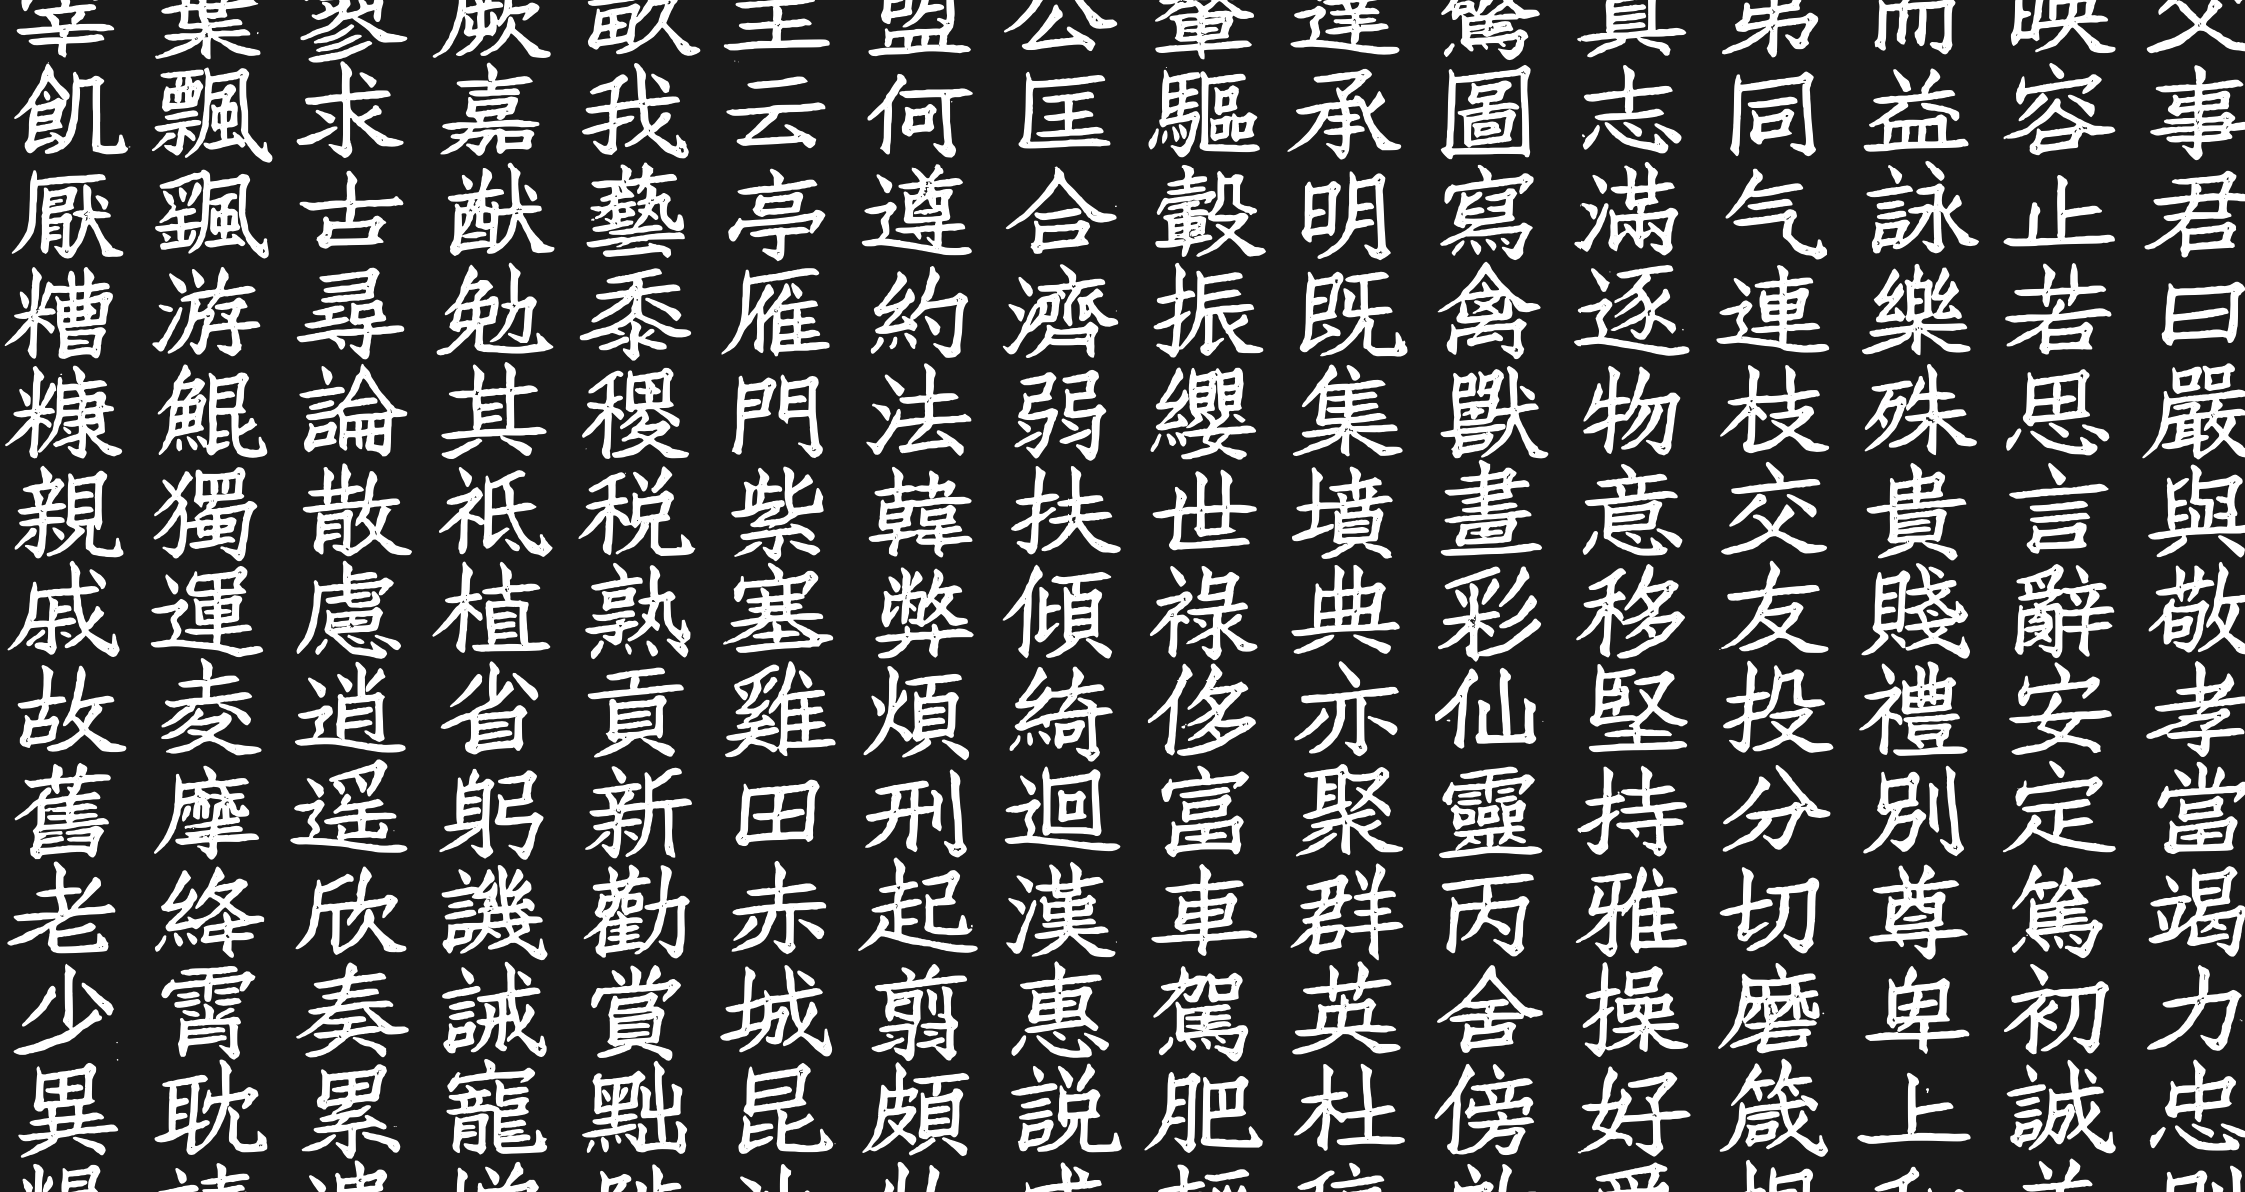 父事君曰嚴與敬孝當竭力忠
映容止若思言辭安定篤初誠
而益詠樂殊貴賤禮別尊卑上
弟同气連枝交友投分切磨箴
真志滿逐物意移堅持雅操好
驚圖寫禽獸畫彩仙靈丙舍傍
達承明既集墳典亦聚群英杜
輦驅轂振纓世祿侈富車駕肥
公匡合濟弱扶傾綺迴漢惠説
盟何遵約法韓弊煩刑起翦頗
主云亭雁門紫塞雞田赤城昆
畝我藝黍稷税熟貢新勸賞黜
厥嘉猷勉其祗植省躬譏誡寵
寥求古尋論散慮逍遥欣奏累
葉飄颻游鯤獨運凌摩絳霄耽
宰飢厭糟糠親戚故舊老少異